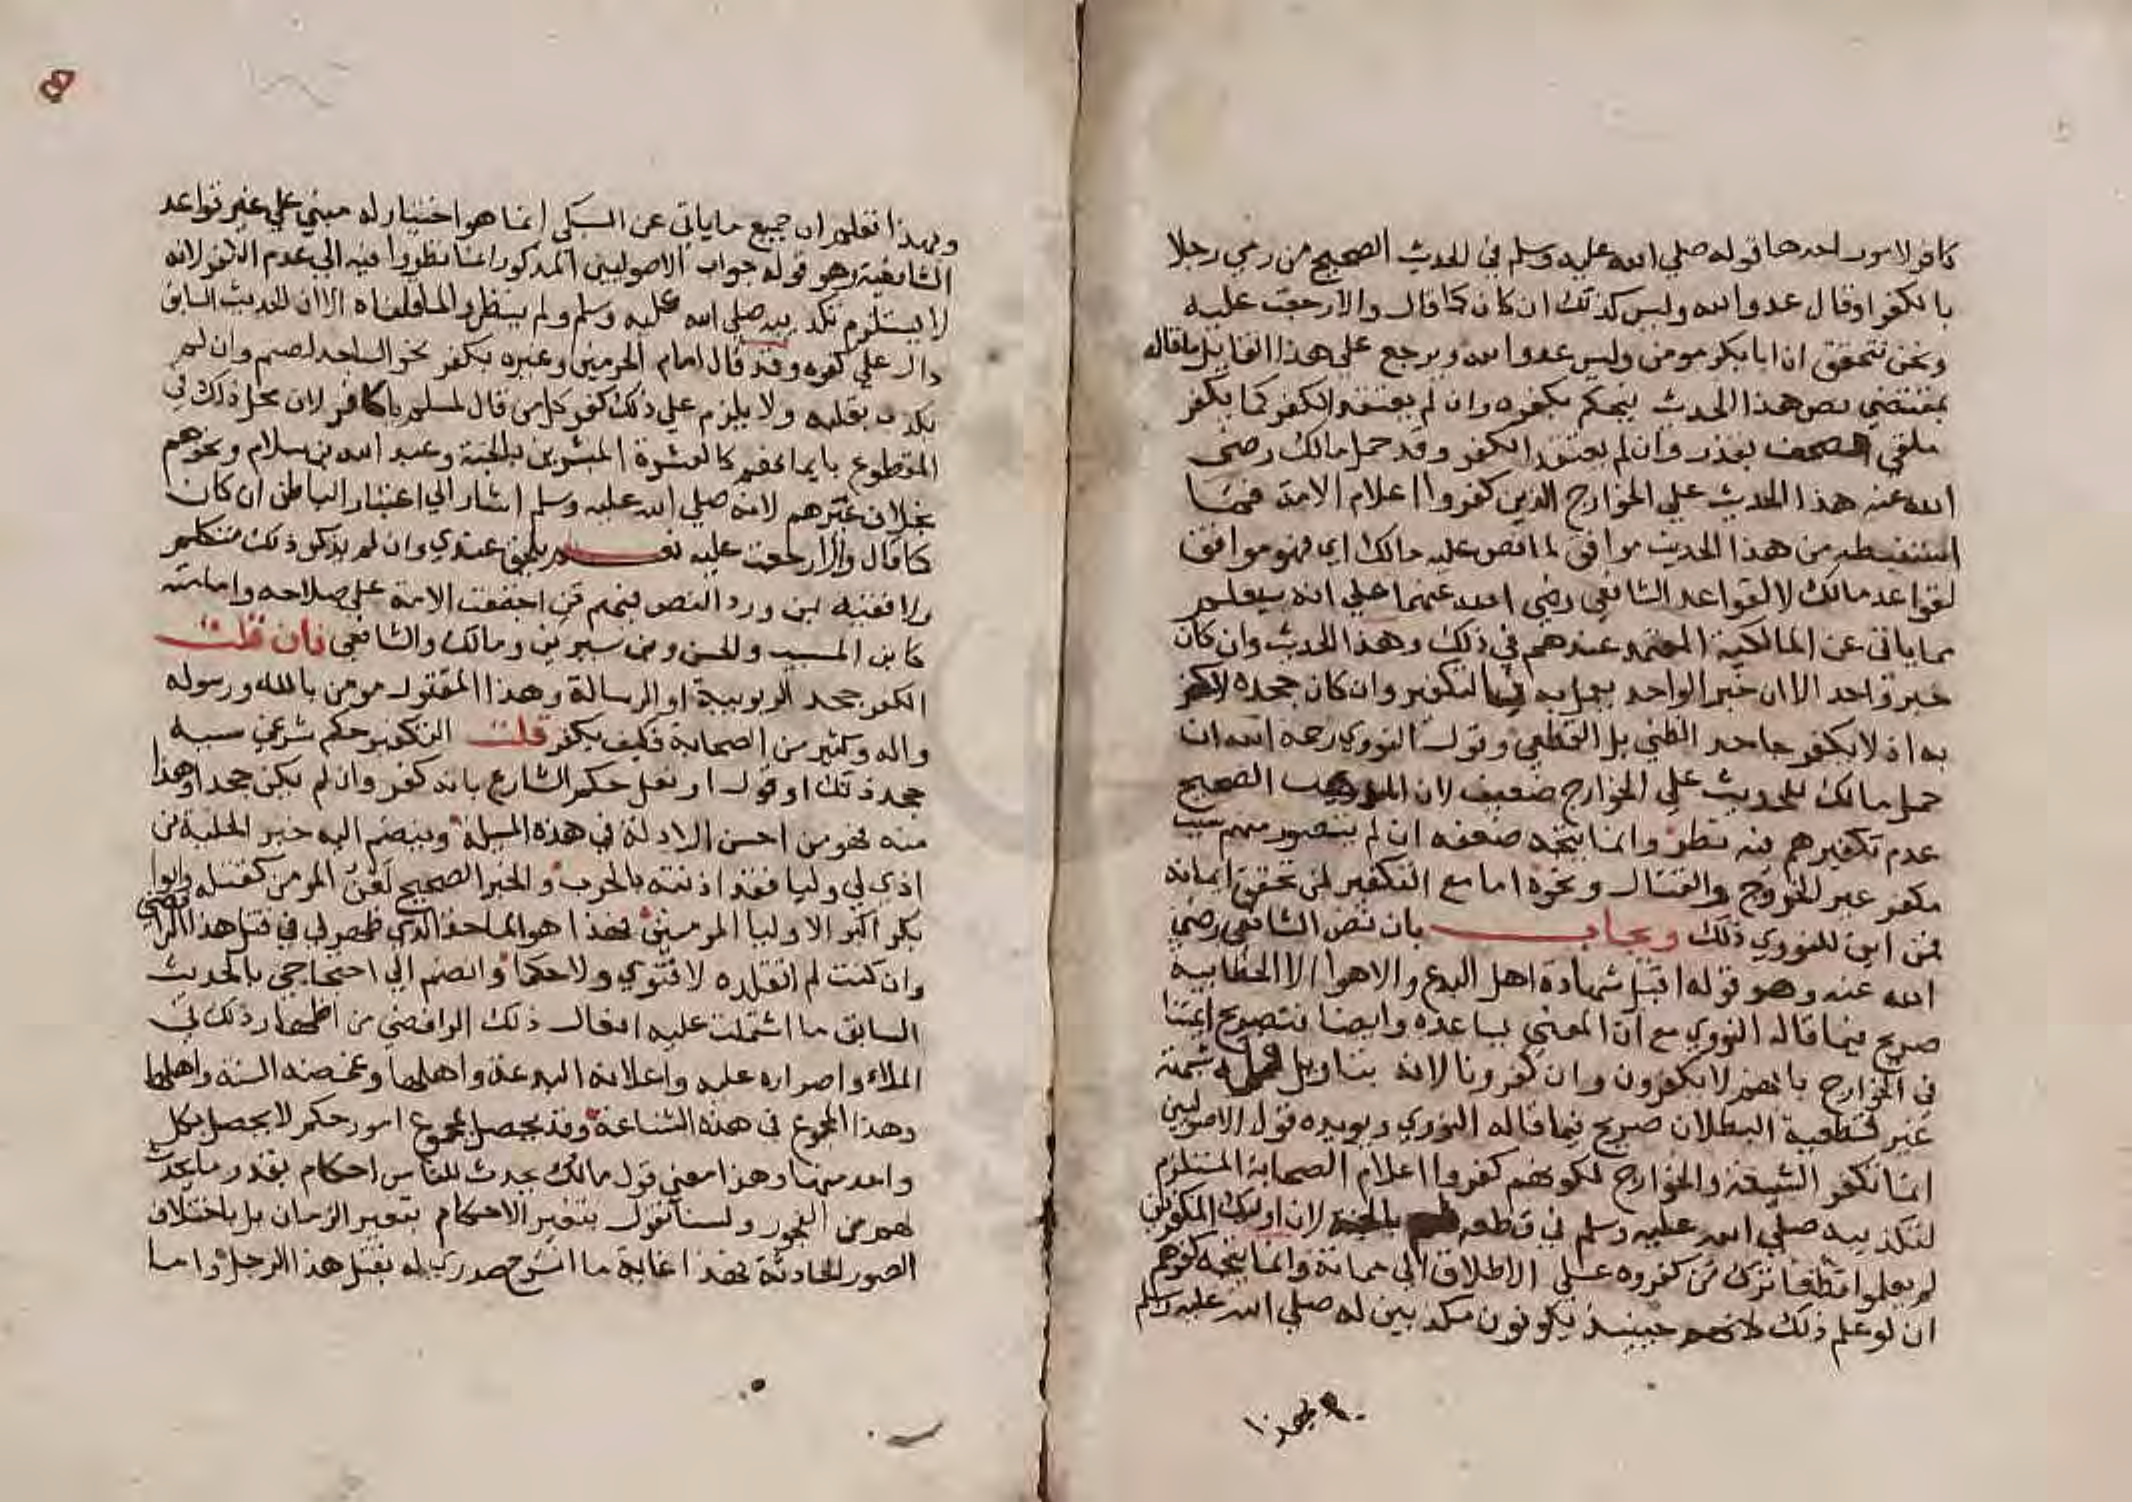 كافر لامور احدها قوله صلي الله عليه وسلم في الحديث الصحيح من رمي رجلا
بالكفر او قال عدو الله وليس كذلك ان كان كما قال والا رجعت عليه
ونحن نتحقق ان ابا بكر مومن وليس عدو الله ويرجع على هذا القايل ما قاله
بمقتضي نص هذا الحديث فيحكم بكفره وان لم يعتقد الكفر كما يكفر
ملقي المصحف بقذر وان لم يعتقد الكفر وقد حمل مالك رضي
الله عنه هذا الحديث علي الخوارج الذين كفروا اعلام الامة فما
استنبطه من هذا الحديث موافق لما نص عليه مالك اي فهو موافق
لقواعد مالك لا لقواعد الشافعي رضي الله عنهما علي انه سيعلم
مما ياتي عن المالكية المعتمد عندهم في ذلك وهذا الحديث وان كان
خبر واحد الا ان خبر الواحد يعمل به في التكفير وان كان جحده لا يكفر
به اذ لا يكفر جاحد الظني بل القطعي وقول النووي رحمه الله ان
حمل مالك للحديث علي الخوارج ضعيف لان المذهب الصحيح
عدم تكفيرهم فيه نظر وانما يتجه ضعفه ان لم يتصور منهم سبب
مكفر غير الخروج والقتال ونحوه اما مع التكفير لمن تحقق ايمانه
فمن اين للنووي ذلك ويجاب بان نص الشافعي رضي
الله عنه وهو قوله اقبل شهادة اهل البدع والاهوا الا الخطابية
صريح فيما قاله النووي مع ان المعني يساعده وايضا فتصريح ايمتنا
في الخوارج بانهم لا يكفرون وان كفرونا لانه بتاويل فلهم شبهة
غير قطعية البطلان صريح فيما قاله النووي ويويده قول الاصوليين
انما تكفر الشيعة والخوارج لكونهم كفروا اعلام الصحابة المستلزم
لتكذيبه صلي الله عليه وسلم في قطعه لهم بالجنة لان اوليك المكفرين
لم يعلموا قطعا تزكية من كفروه علي الاطلاق الي مماته وانما يتجه كفرهم
ان لو علم ذلك لانهم حينيذ يكونون مكذبين له صلي الله عليه وسلم
وبهذا
وبهذا تعلم ان جميع ما ياتي عن السبكي انما هو اختيار له مبني علي غير قواعد
الشافعية وهو قوله جواب الاصوليين المذكور انما نظروا فيه الي عدم الكفر لانه
لا يستلزم تكذيبه صلي الله عليه وسلم ولم ينظروا لما قلناه الا ان الحديث السابق
دال علي كفره وقد قال امام الحرمين وغيره يكفر نحو الساجد لصنم وان لم
يكذب بقلبه ولا يلزم علي ذلك كفر كل من قال لمسلم يا كافر لان محل ذلك في
المقطوع بايمانهم كالعشرة المبشرين بالجنة وعبد الله بن سلام ونحوهم
بخلاف غيرهم لانه صلي الله عليه وسلم اشار الي اعتبار الباطن ان كان
كما قال والا رجعت عليه نعم يلحق عندي وان لم يذكر ذلك متكلم
ولا فقيه لمن ورد النص فيهم من اجمعت الامة علي صلاحه وامامته
كابن المسيب والحسن وبن سيرين ومالك والشافعي فان قلت
الكفر جحد الربوبية او الرسالة وهذا المقتول مومن بالله ورسوله
واله وكثير من الصحابة فكيف يكفر قلت التكفير حكم شرعي سببه
جحد ذلك او قول او فعل حكم الشارع بانه كفر وان لم يكن جحدا وهذا
منه فهو من احسن الادلة في هذه المسلة وينضم اليه خبر الحلية من
اذي لي وليا فقد اذنته بالحرب والخبر الصحيح لعن المومن كقتله وابو
بكر اكبر الاوليا المومنين فهذا هو الماخذ الذي ظهر لي في قتل هذا الرافضي
وان كنت لم اتقلده لا فتوي ولا حكما وانضم الي احتجاجي بالحديث
السابق ما اشتملت عليه افعال ذلك الرافضي من اظهار ذلك في
الملاء واصراره عليه واعلانه البدعة واهلها وغمضه السنة واهلها
وهذا المجموع في هذه الشناعة وقد يحصل بمجموع امور حكم لا يحصل بكل
واحد منها وهذا معني قول مالك يحدث للناس احكام بقدر ما يحدث
لهم من الفجور ولسنا نقول بتغير الاحكام بتغير الزمان بل باختلاف
الصور الحادثة فهذا غاية ما انشرح صدري له بقتل هذا الرجل واما